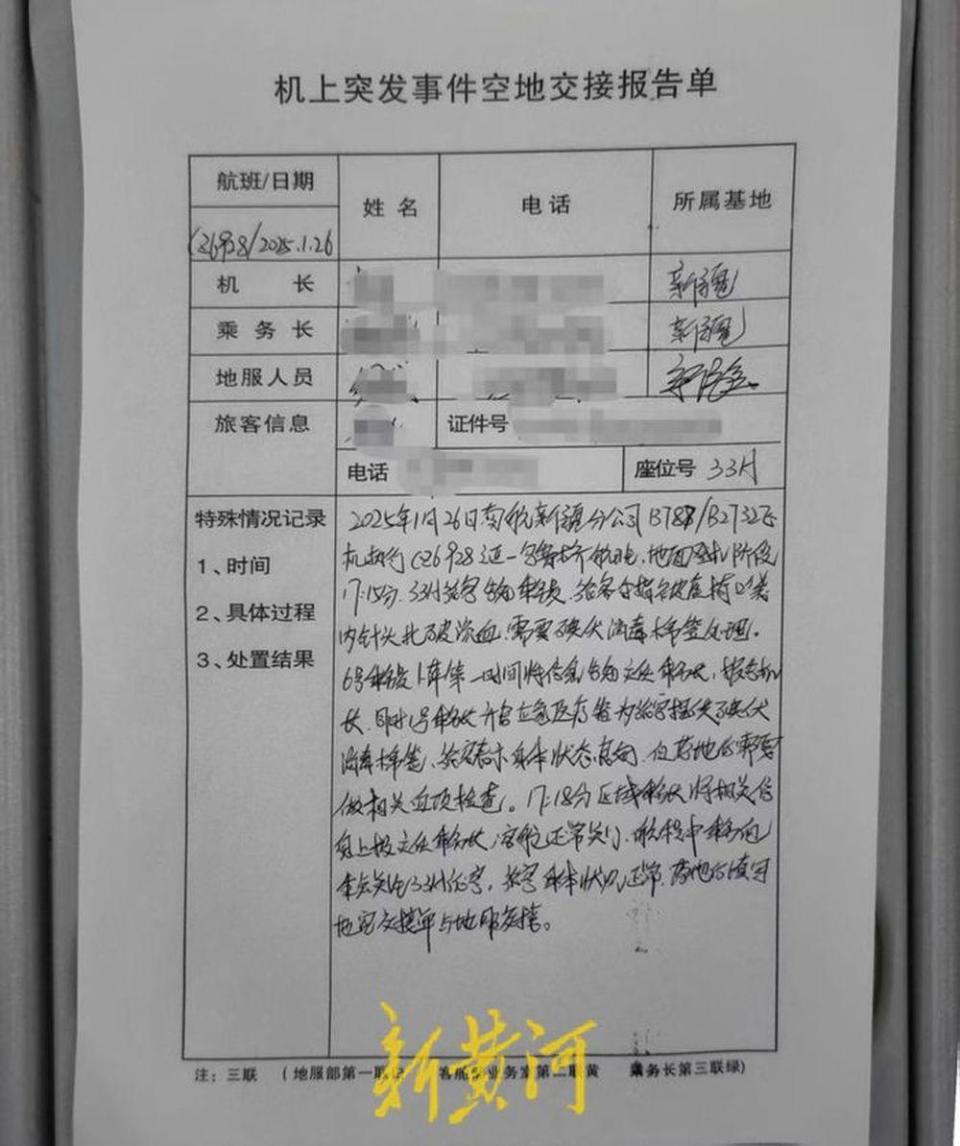 机上突发事件空地交接报告单
航班/日期
姓名
电话
所属基地
CZ6928/2025.1.26
机长
新疆
乘务长
新疆
地服人员
旅客信息
证件号
电话
座位号 33H
特殊情况记录
1、时间
2、具体过程
3、处置结果
2025年1月26日南航新疆分公司B787/B2732飞
机执行CZ6928 航班,地面 阶段
17:15分.33H旅客告知乘务员.旅客手指被座椅口袋
内针头扎破流血.需要碘伏消毒棉签处理。
6号乘务员 第一时间将信息告知主任乘务长,报告机
长.同时1号乘务长开启应急医疗箱为旅客提供了碘伏
消毒棉签.旅客表示身体状态良好.但落地后需要
做相关血项检查。17:18分区域乘务长将相关信
息上报主任乘务长,客舱正常关门.航程中乘务组
关注33H旅客,旅客身体状况正常.落地后填写
地空交接单与地服交接。
新黄河
注:三联 (地服部第一联 客舱部业务室第二联黄 乘务长第三联绿)